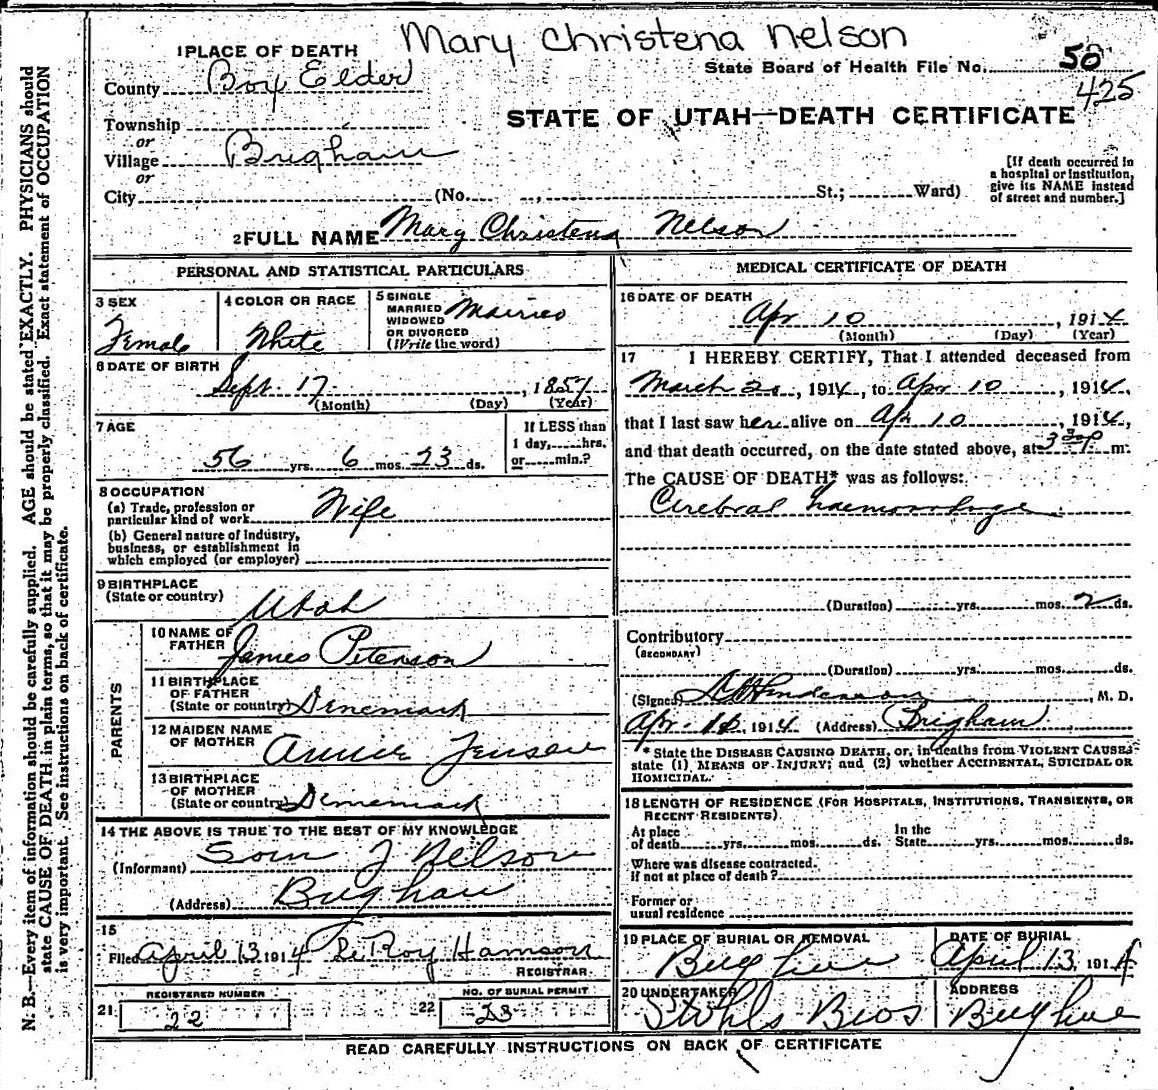 Mary Christena Nelson
1 PLACE OF DEATH
State Board of Health File No. 50
425
County Box Elder
STATE OF UTAH—DEATH CERTIFICATE
Township
or
Village Brigham
or
City (No. , St.; Ward)
[If death occurred in
a hospital or institution,
give its NAME instead
of street and number.]
2 FULL NAME Mary Christena Nelson
PERSONAL AND STATISTICAL PARTICULARS
3 SEX
Female
4 COLOR OR RACE
White
5 SINGLE
MARRIED
WIDOWED
OR DIVORCED
(Write the word)
Married
6 DATE OF BIRTH
Sept. 17, 1857
(Month) (Day) (Year)
7 AGE
56 yrs. 6 mos. 23 ds.
If LESS than
1 day,......hrs.
or......min.?
8 OCCUPATION
(a) Trade, profession or
particular kind of work Wife
(b) General nature of industry,
business, or establishment in
which employed (or employer)
9 BIRTHPLACE
(State or country)
Utah
PARENTS
10 NAME OF
FATHER
James Peterson
11 BIRTHPLACE
OF FATHER
(State or country) Denemark
12 MAIDEN NAME
OF MOTHER
Annie Jensen
13 BIRTHPLACE
OF MOTHER
(State or country) Denemark
14 THE ABOVE IS TRUE TO THE BEST OF MY KNOWLEDGE
(Informant) J Nelson
(Address) Brigham
15
Filed April 13 1914 LeRoy
REGISTRAR
21 REGISTERED NUMBER
22
22 NO. OF BURIAL PERMIT
23
MEDICAL CERTIFICATE OF DEATH
16 DATE OF DEATH
Apr 10, 1914
(Month) (Day) (Year)
17 I HEREBY CERTIFY, That I attended deceased from
March 20, 1914, to Apr 10, 1914,
that I last saw her alive on Apr 10, 1914,
and that death occurred, on the date stated above, at 3 30 p m.
The CAUSE OF DEATH* was as follows:
Cerebral haemorrhage
(Duration) yrs. mos. 2 ds.
Contributory
(SECONDARY)
(Duration) yrs. mos. ds.
(Signed) Henderson, M. D.
Apr. 1914 (Address) Brigham
* State the DISEASE CAUSING DEATH, or, in deaths from VIOLENT CAUSES
state (1) MEANS OF INJURY; and (2) whether ACCIDENTAL, SUICIDAL OR
HOMICIDAL.
18 LENGTH OF RESIDENCE (FOR HOSPITALS, INSTITUTIONS, TRANSIENTS, OR
RECENT RESIDENTS)
At place
of death yrs. mos. ds.
In the
State yrs. mos. ds.
Where was disease contracted.
if not at place of death?
Former or
usual residence
19 PLACE OF BURIAL OR REMOVAL
Brigham
DATE OF BURIAL
April 13, 1914
20 UNDERTAKER
Stohls Bros
ADDRESS
Brigham
READ CAREFULLY INSTRUCTIONS ON BACK OF CERTIFICATE
N. B.—Every item of information should be carefully supplied. AGE should be stated EXACTLY. PHYSICIANS should
state CAUSE OF DEATH in plain terms, so that it may be properly classified. Exact statement of OCCUPATION
is very important. See instructions on back of certificate.